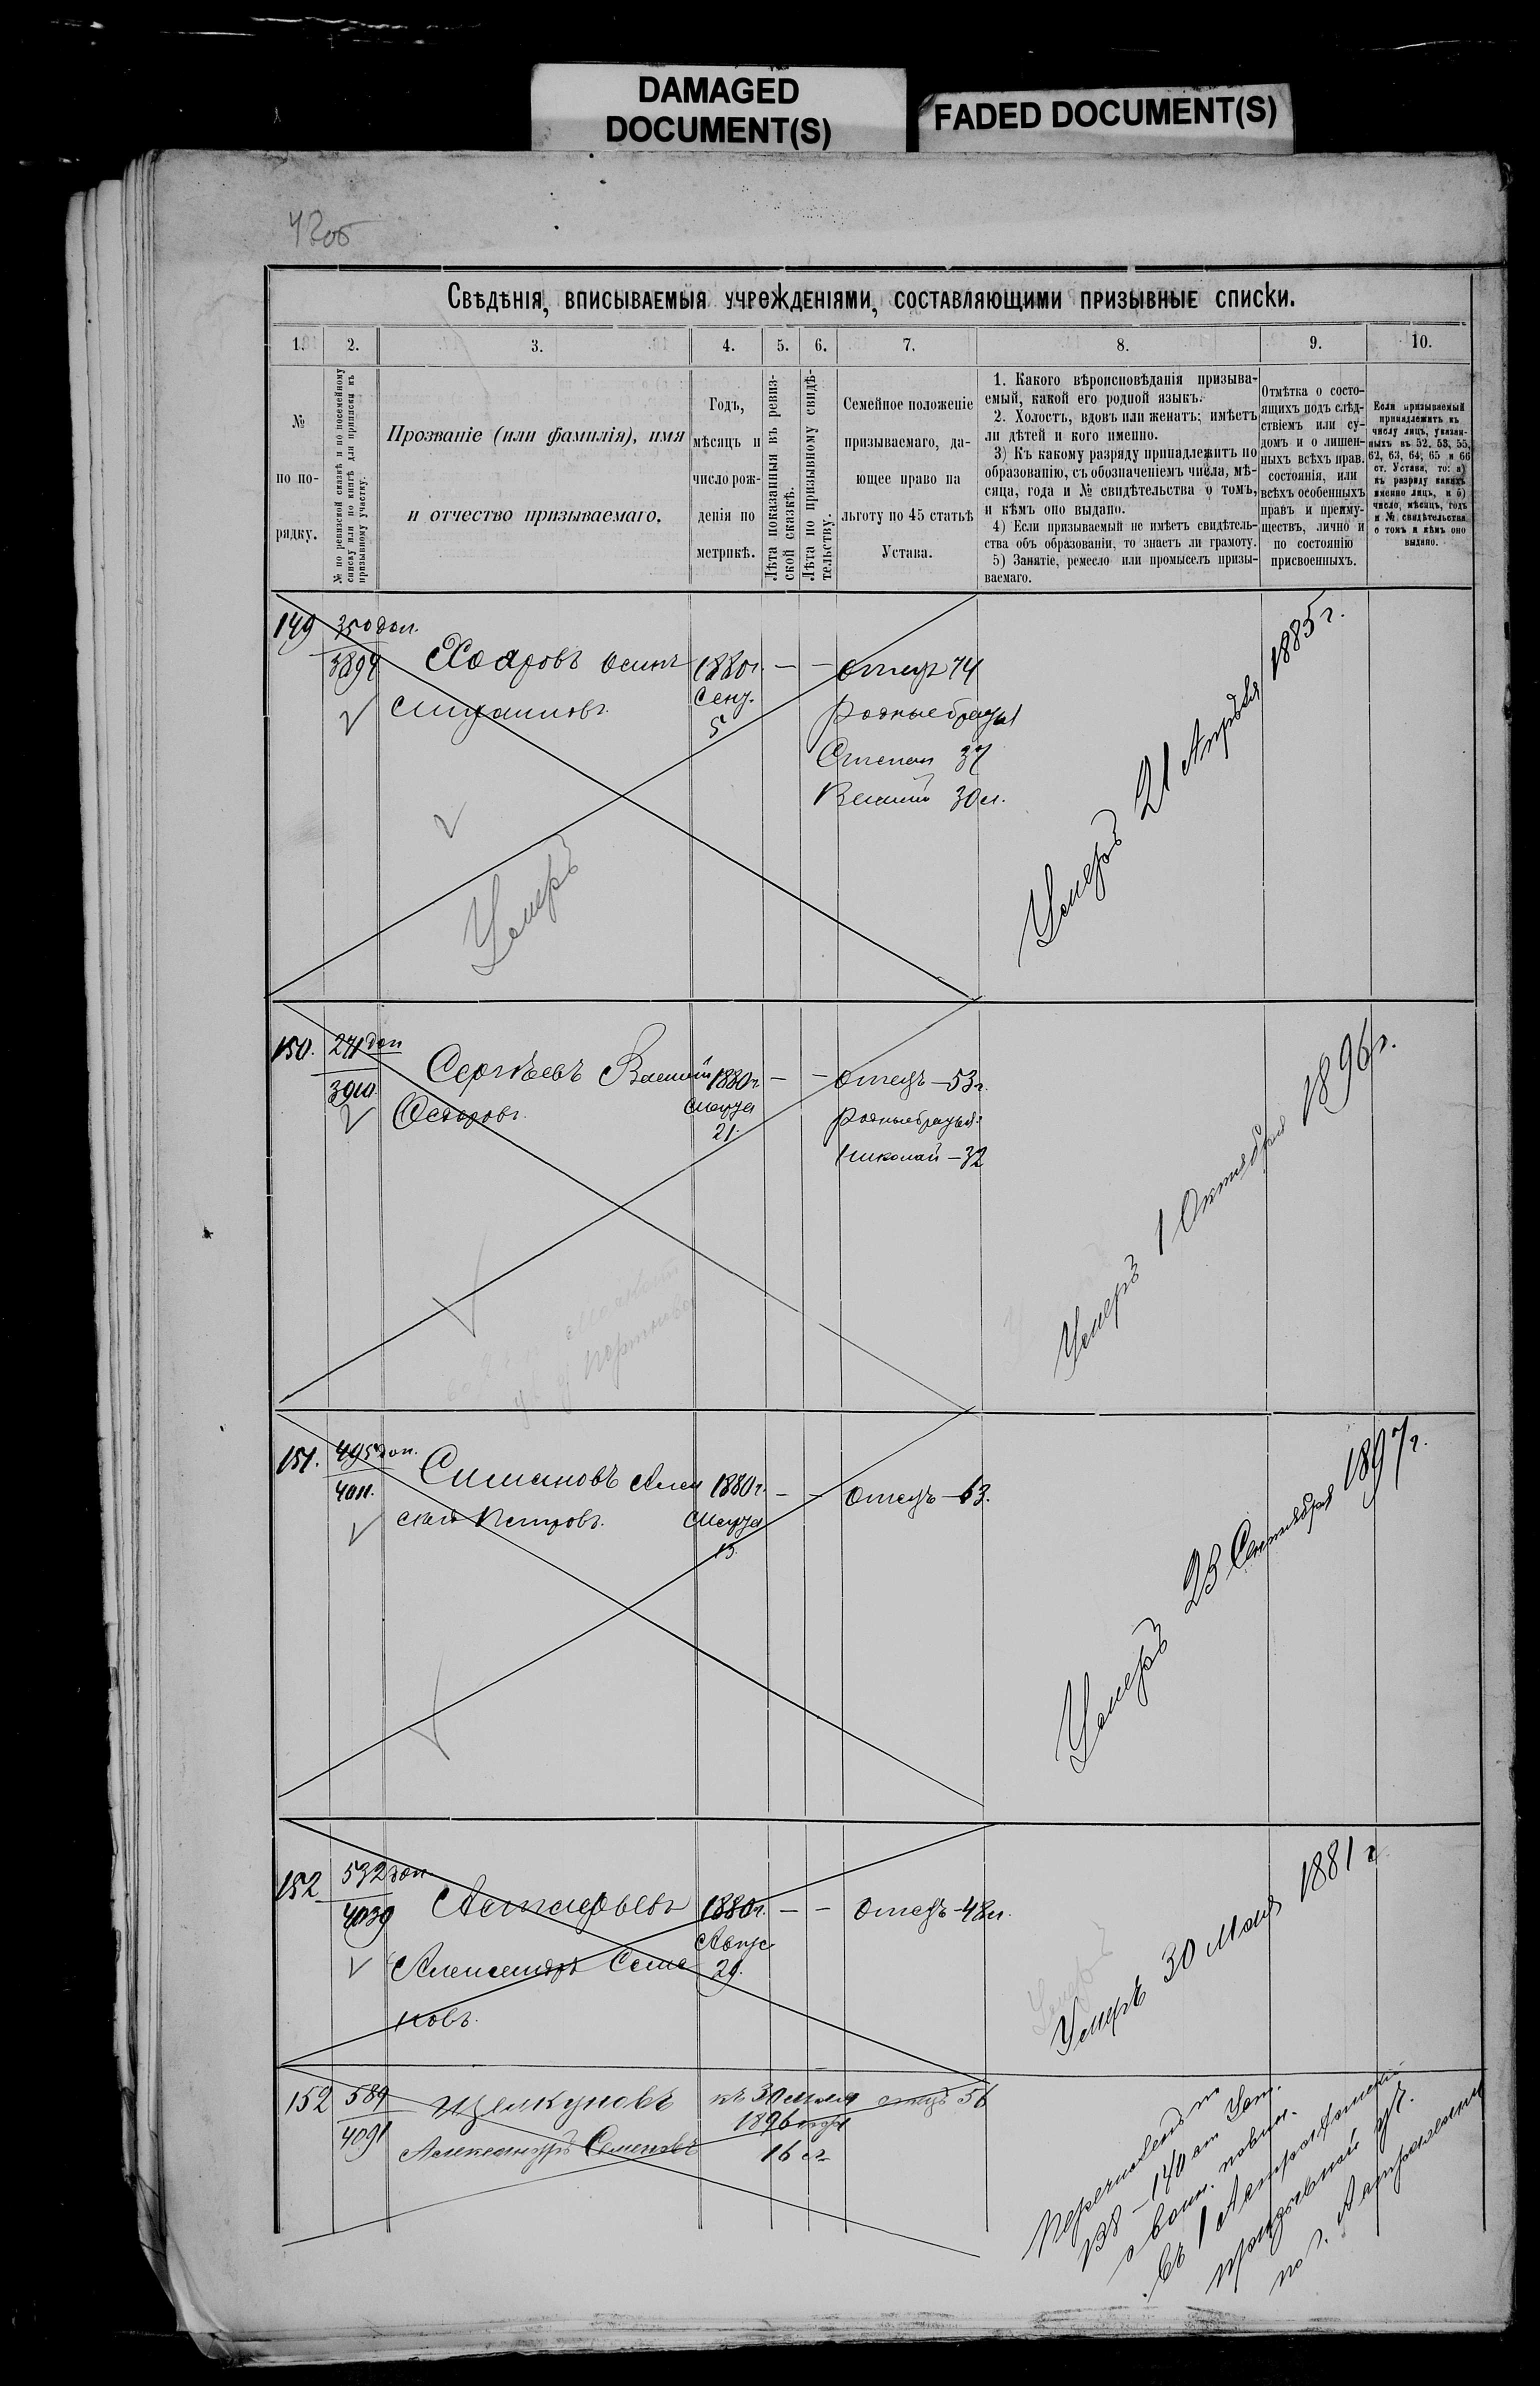 DAMAGED
DOCUMENT(S)
FADED DOCUMENT(S)
Свѣдѣнія, вписываемыя учрежденіями, составляющими призывные списки.
1.
2.
3.
4.
5.
6.
7.
8.
9.
10.
№
по по-
рядку.
№ по ревизской сказкѣ и по посемейному
списку или по книгѣ для приписки къ
призывному участку.
Прозваніе (или фамилія), имя
и отчество призываемаго.
Годъ,
мѣсяцъ и
число рож-
денія по
метрикѣ.
Лѣта показанныя въ ревиз-
ской сказкѣ.
Лѣта по призывному свидѣ-
тельству.
Семейное положеніе
призываемаго, да-
ющее право на
льготу по 45 статьѣ
Устава.
1. Какого вѣроисповѣданія призыва-
емый, какой его родной языкъ.
2. Холостъ, вдовъ или женатъ; имѣетъ
ли дѣтей и кого именно.
3) Къ какому разряду принадлежитъ по
образованію, съ обозначеніемъ числа, мѣ-
сяца, года и № свидѣтельства о томъ,
и кѣмъ оно выдано.
4) Если призываемый не имѣетъ свидѣтель-
ства объ образованіи, то знаетъ ли грамоту.
5) Занятіе, ремесло или промыселъ призы-
ваемаго.
Отмѣтка о состо-
ящихъ подъ слѣд-
ствіемъ или су-
домъ и о лишен-
ныхъ всѣхъ прав.
состоянія, или
всѣхъ особенныхъ
правъ и преиму-
ществъ, лично и
по состоянію
присвоенныхъ.
Если призываемый
принадлежитъ къ
числу лицъ, указан-
ныхъ въ 52, 53, 55,
62, 63, 64, 65 и 66
ст. Устава, то: а)
къ разряду какихъ
именно лицъ, и б)
число, мѣсяцъ, годъ
и № свидѣтельства
о томъ и кѣмъ оно
выдано.
149
350 доп.
3894
Осипъ
1880 г.
Сент.
5
— —
отецъ 74
родные братья
Степан 37
Василій 30 л.
Умеръ 21 Апрѣля 1885 г.
Умеръ
150.
271 доп
3910
Сергѣевъ Василій
Ѳедоровъ.
1880 г.
Марта
21.
— —
отецъ — 53 г.
родные братья:
Николай — 32
Умеръ 1 Октября 1896 г.
151.
495 доп.
4011.
Симановъ Алек
сѣй Петровъ.
1880 г.
Марта
15.
— —
отецъ — 63.
Умеръ 23 Сентября 1897 г.
152
532 доп
4039
Астафьевъ
Александръ Семе
новъ.
1880 г.
Авгус
29.
— —
отецъ — 48 л.
Умеръ
Умеръ 30 Мая 1881 г
152
589
4091
Щелкуновъ
Александръ Семеновъ
къ 30
1896 года
16 л.
отецъ 56
Перечисленъ п
138 — 140 ст Уст.
о воин. повин.
въ 1 Астраханскій
призывной уч.
по г. Астрахани